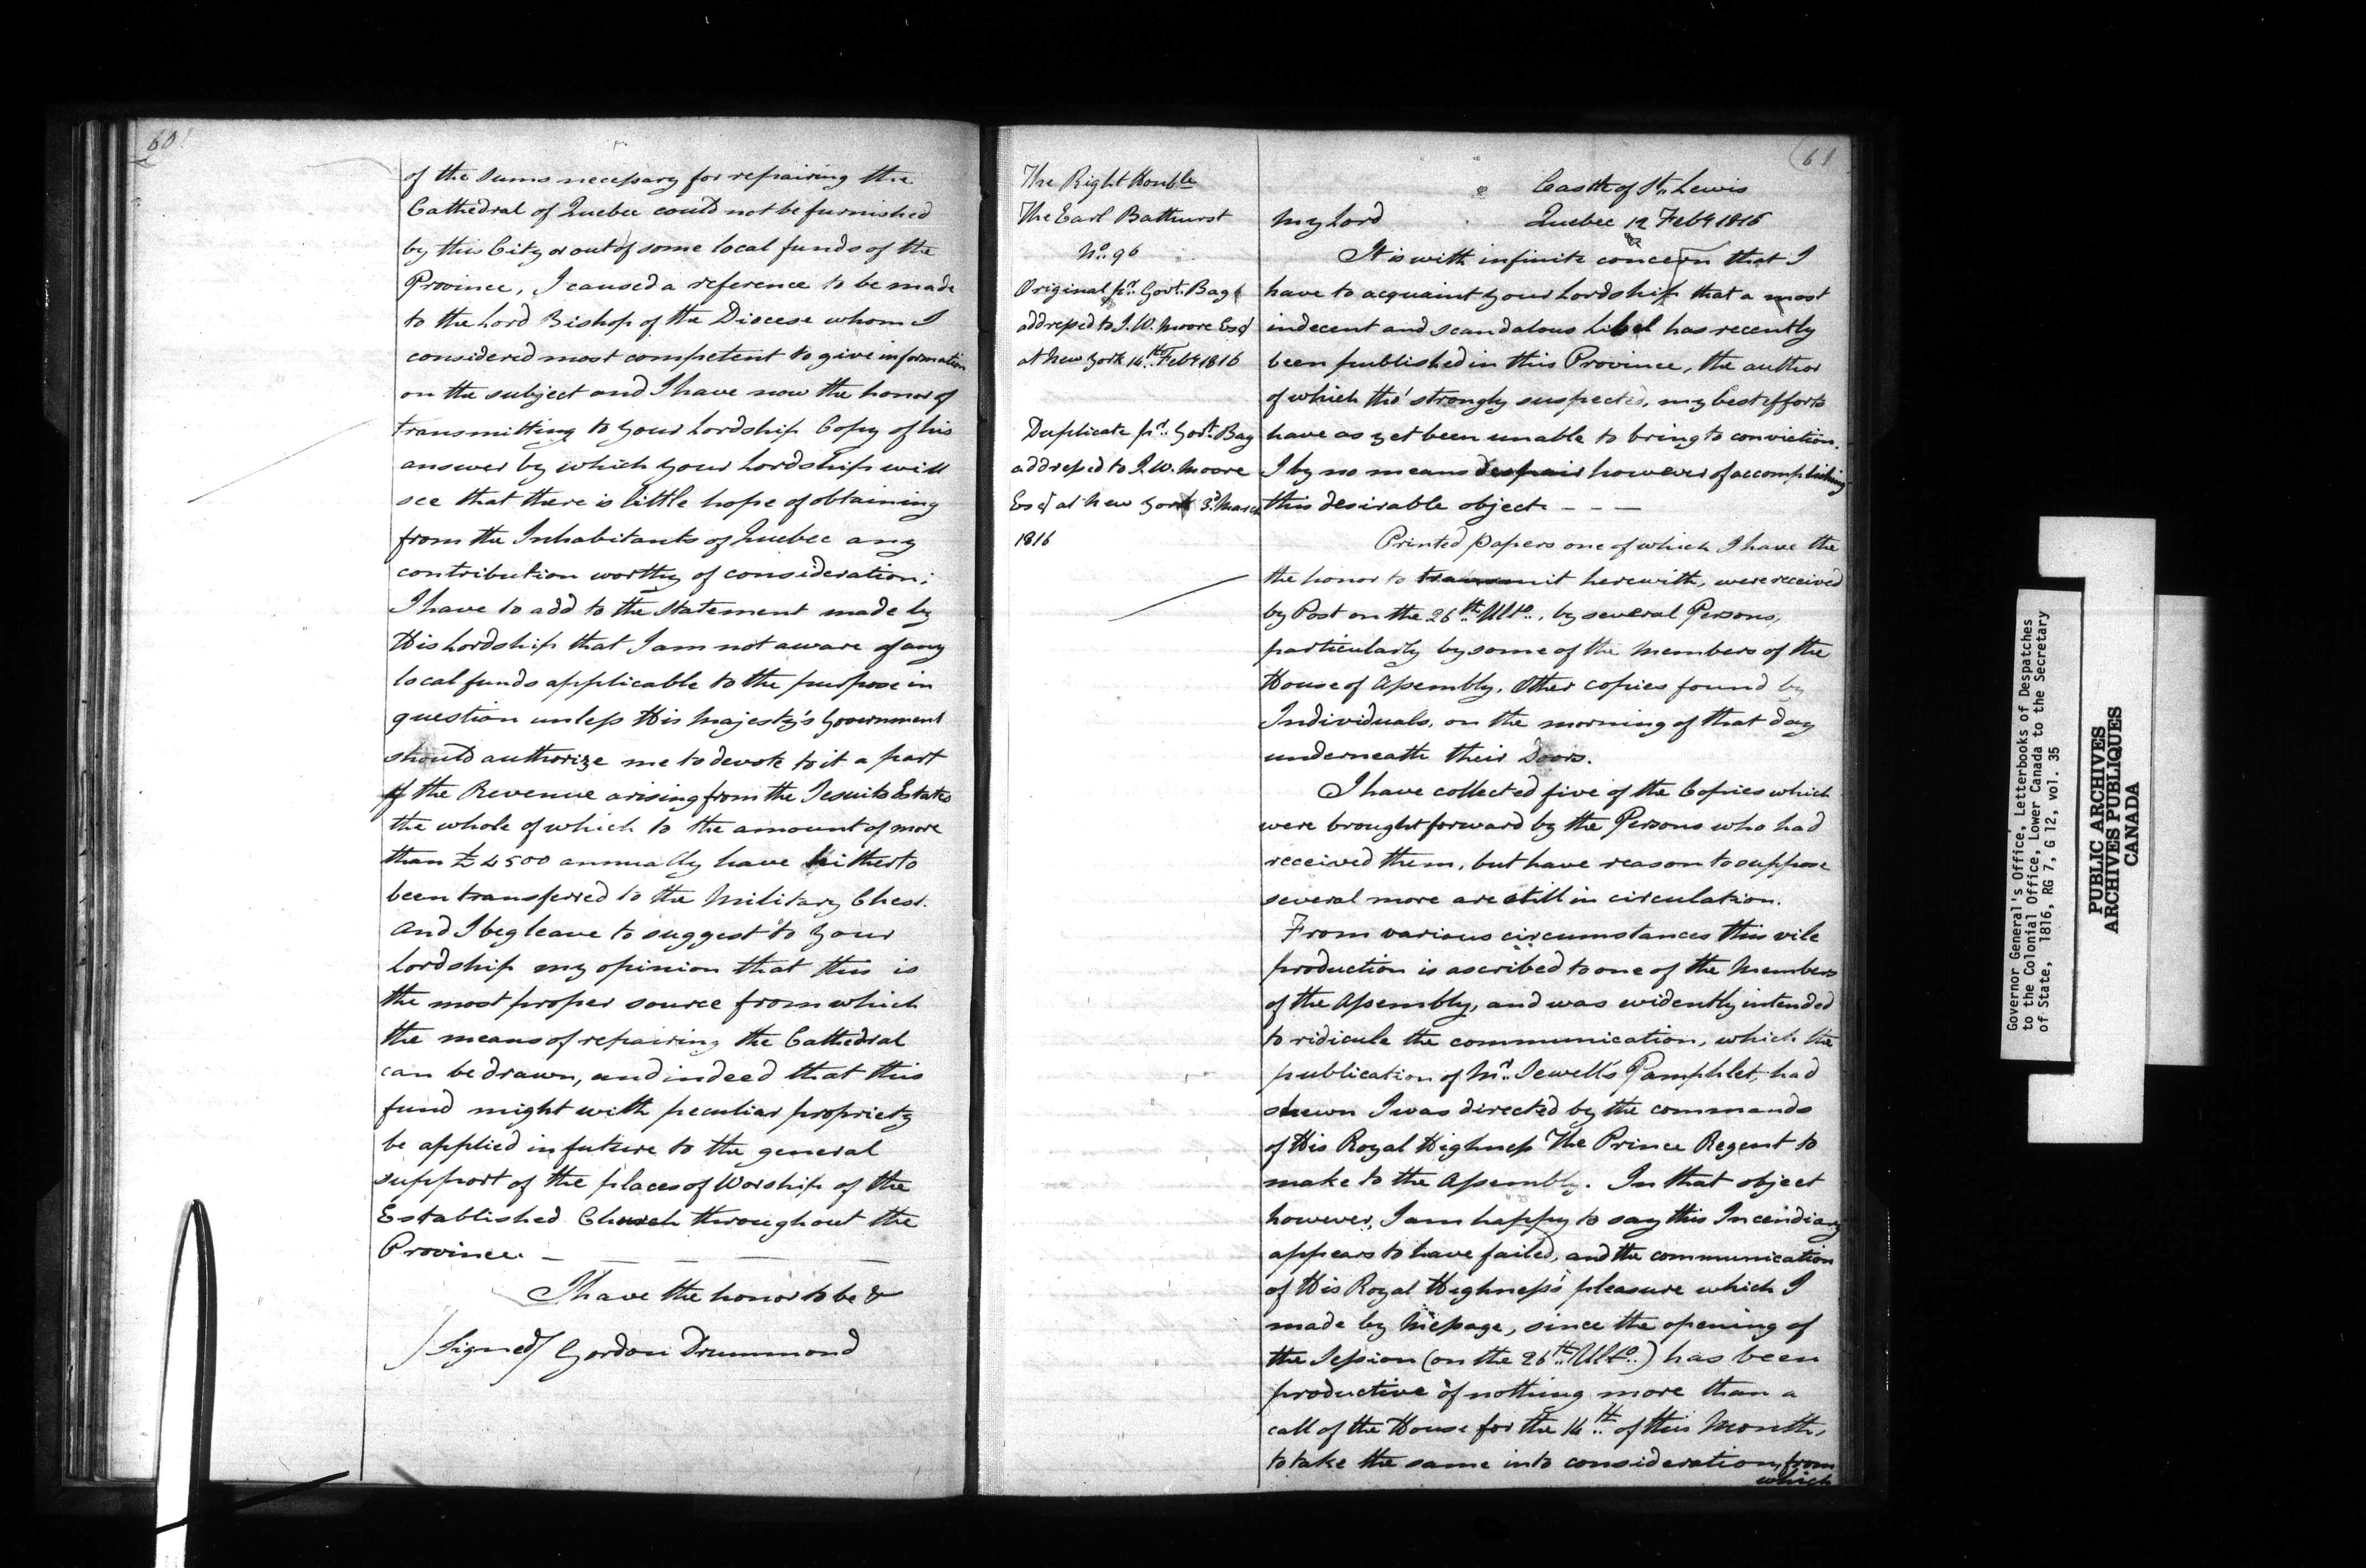 60
of the Sums necessary for repairing the
Cathedral of Quebec could not be furnished
by this City or out of some local funds of the
Province, I caused a reference to be made
to the Lord Bishop of the Diocese whom I
considered most competent to give information
on the subject and I have now the honor of
transmitting to Your Lordship Copy of his
answer by which Your Lordship will
see that there is little hope of obtaining
from the Inhabitants of Quebec any
contribution worthy of consideration;
I have to add to the Statement made by
His Lordship that I am not aware of any
local funds applicable to the purpose in
question unless His Majesty's Government
should authorize me to devote to it a part
of the Revenue arising from the Jesuits Estates
the whole of which to the amount of more
than £ 2500 annually have hitherto
been transferred to the Military Chest.
And I beg leave to suggest to Your
Lordship my opinion that this is
the most proper source from which
the means of repairing the Cathedral
can be drawn, and indeed that this
fund might with peculiar propriety
be applied in future to the general
support of the places of Worship of the
Established Church throughout the
Province.
I have the honor to be &
/Signed/ Gordon Drummond
61
The Right Honble
The Earl Bathurst
No. 96
Original pr. Govt. Bag
addressed to I. W. Moore Esqr
at New York 14th Feby 1816
Duplicate pr. Govt. Bag
addressed to I. W. Moore
Esqr at New York 3d. March
1816
Castle of St. Lewis
My Lord Quebec 12 Feby 1816
It is with infinite concern that I
have to acquaint Your Lordship that a most
indecent and scandalous Libel has recently
been published in this Province, the author
of which tho' strongly suspected, my best efforts
have as yet been unable to bring to conviction.
I by no means despair however of accomplishing
this desirable object. - - -
Printed Papers one of which I have the
the honor to transmit herewith, were received
by Post on the 26th Ulto., by several Persons,
particularly by some of the Members of the
House of Assembly. Other copies found by
Individuals, on the morning of that day
underneath their Doors.
I have collected five of the Copies which
were brought forward by the Persons who had
received them, but have reason to suppose
several more are still in circulation.
From various circumstances this vile
production is ascribed to one of the Members
of the Assembly, and was evidently intended
to ridicule the communication, which the
publication of Mr. Sewell's Pamphlet, had
shewn I was directed by the commands
of His Royal Highness The Prince Regent to
make to the Assembly. In that object
however, I am happy to say this Incendiary
appears to have failed, and the communication
of His Royal Highness's pleasure which I
made by Message, since the opening of
the Session (on the 26th Ulto.) has been
productive of nothing more than a
call of the House for the 14th of this Month,
to take the same into consideration, from
which
Governor General's Office, Letterbooks of Despatches
to the Colonial Office, Lower Canada to the Secretary
of State, 1816, RG 7, G 12, vol. 35
PUBLIC ARCHIVES
ARCHIVES PUBLIQUES
CANADA